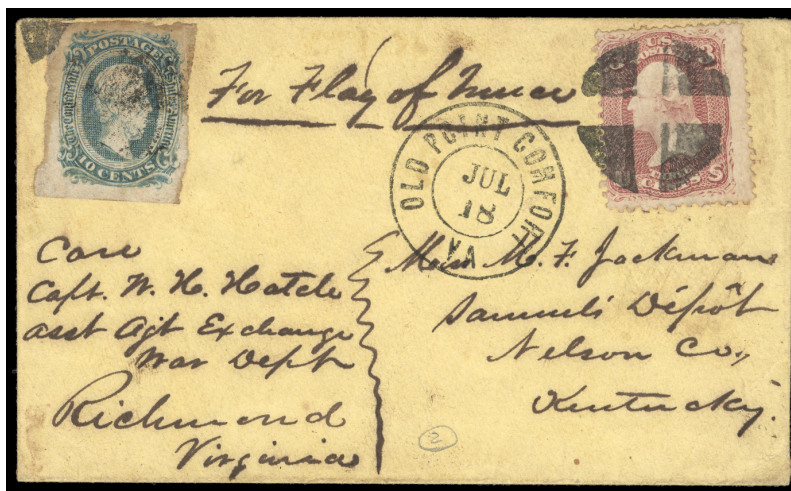 POSTAGE
The Confederate States of America
10 CENTS
For Flag of Truce
U.S.
POSTAGE
OLD POINT COMFORT
JUL
18
VA
Care
Capt. W. H. Hatch
asst Agt Exchange
War Dept
Richmond
Virginia
Miss M. F. Jackman
Samuels Dépôt
Nelson Co,
Kentucky.
2